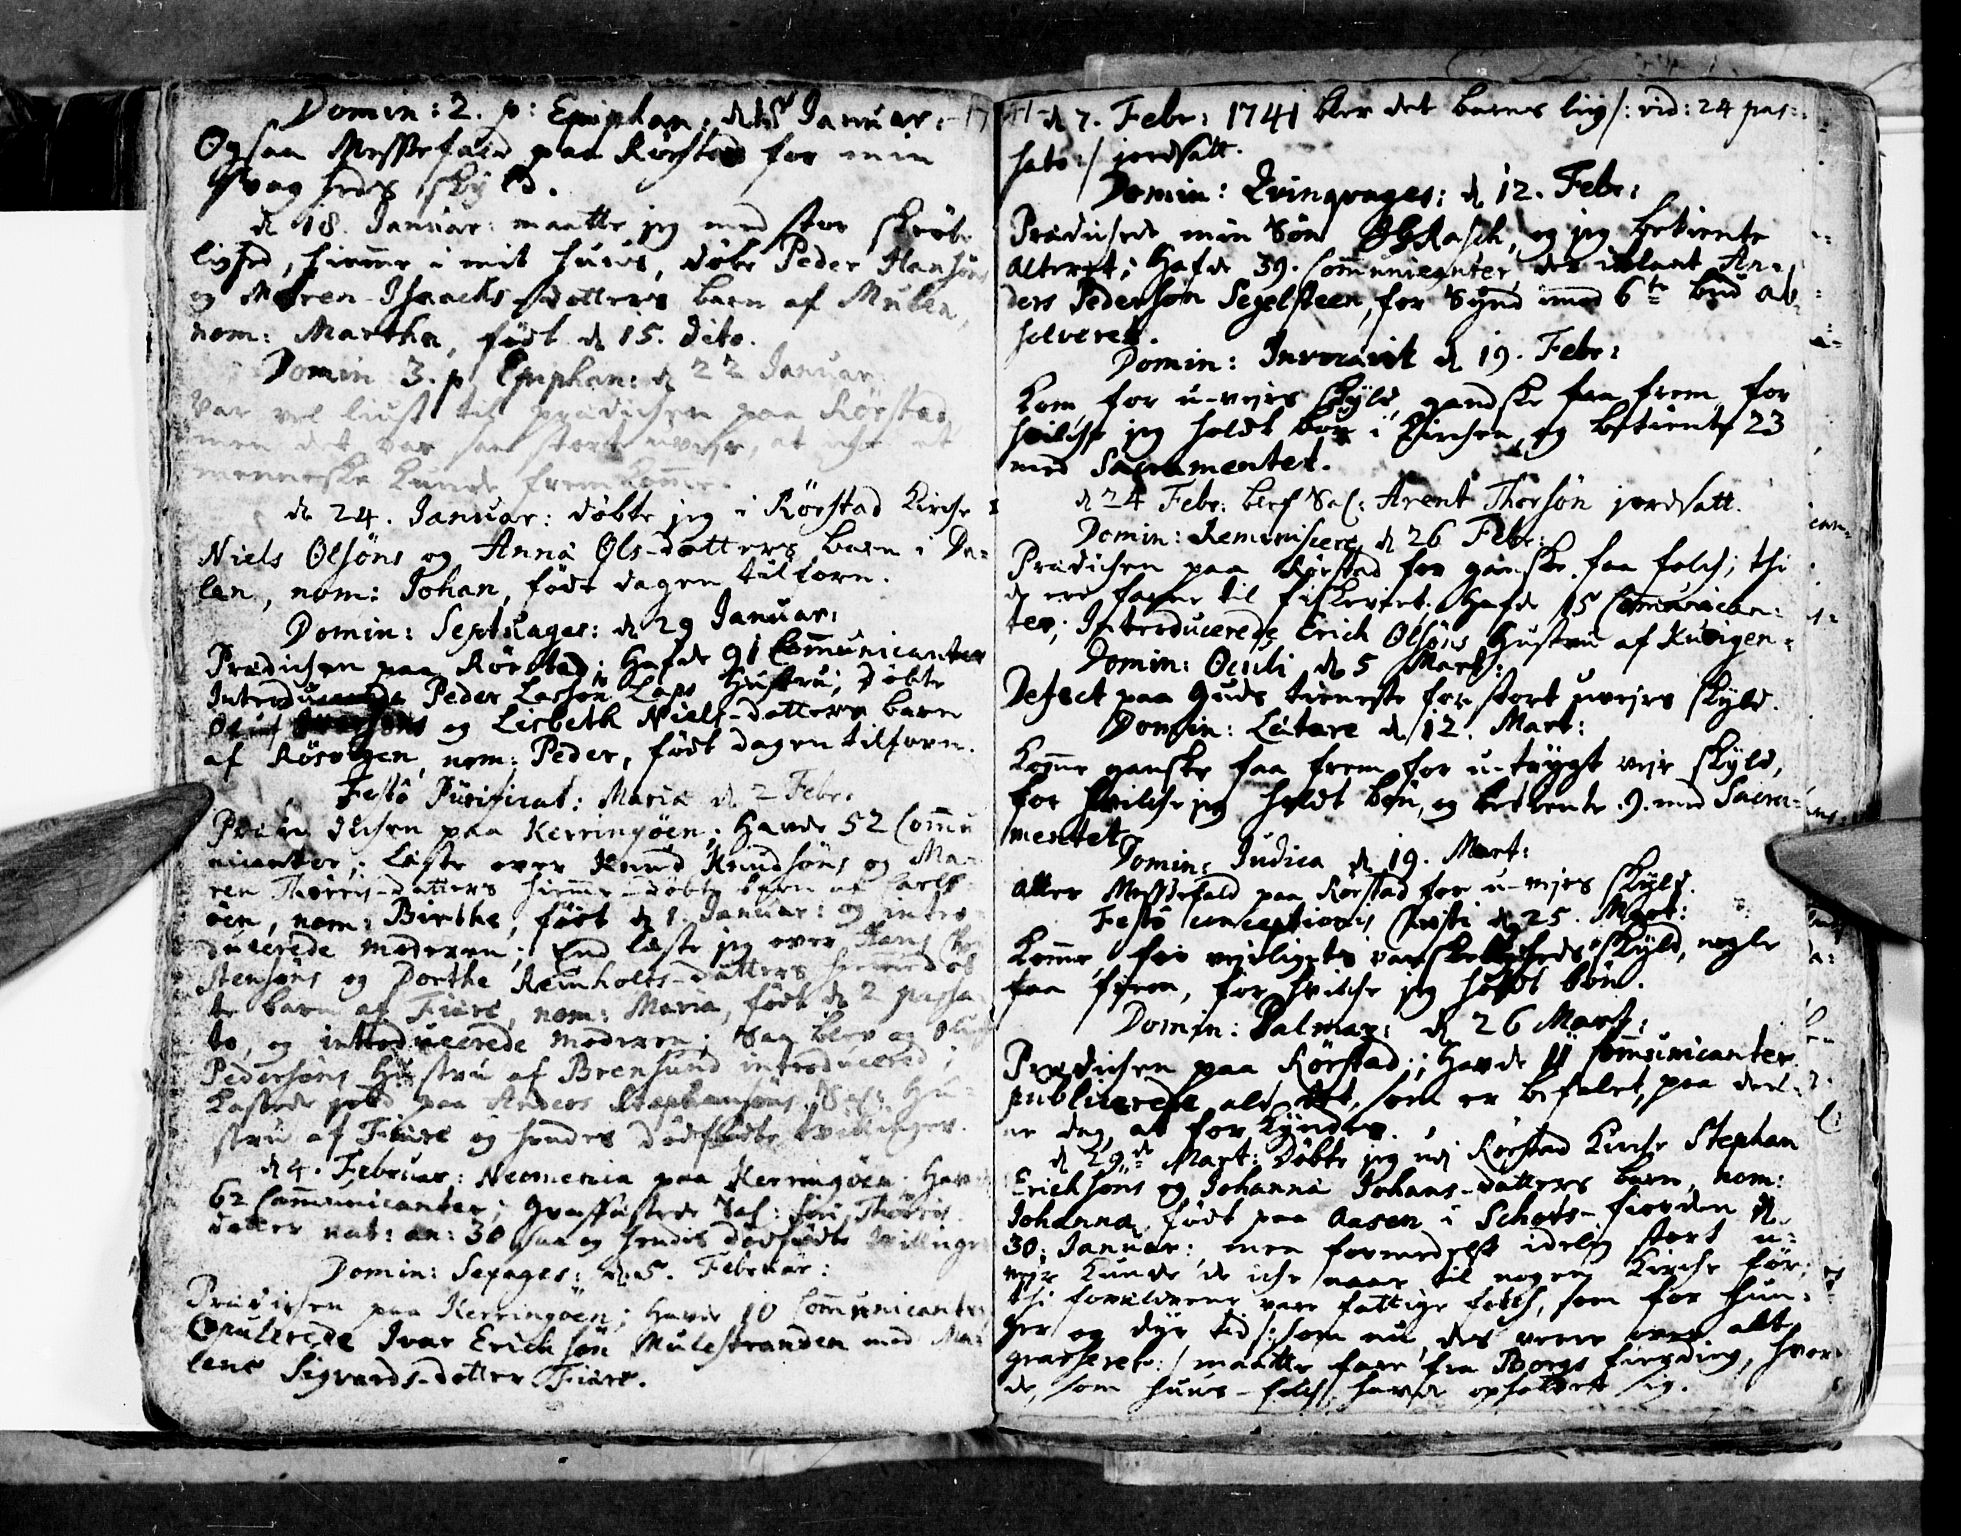 Domin: 2. p: Epiphan: d. 15 Januar: 17
Ogsaa Messefald paa Rørstad for min
svagheds skyld.
d 18. Januar: maatte jeg med stor skrøbe-
lighed, hiemme i mit huus, døbe Peder Hansøns
og Maren Isaachs-datters barn af Mulen,
nom: Martha, født d 15. dito.
Domin 3. p Epiphan: d 22 Januar
Var vel liust til prædichen paa Rørstad,
men det var saa stort uvejr, at iche et
menneske kunde fremkomme.
d 24. Januar: døbte jeg i Rørstad Kirche
Niels Olsøns og Anna Ols-datters barn i Da-
len, nom: Johan, født dagen tilforn.
Domin: Septuages: d 29 Januar:
Prædichen paa Rørstad; Hafde 91 Communicanter
Introducerede Peder Lassøn Laps Hustru; Døbte
Oluf Iversøns og Lisbeth Niels-datters barn
af Røsvigen, nom: Peder, født dagen tilforn.
Festo Purificat: Mariæ d 2 Febr:
Prædichen paa Kerringøen; Havde 52 Commu
nicanter; Læste over Knud Knudsøns og Ma-
ren Thorris-datters hiemme-døbte barn af Carls-
øen, nom: Birthe, født d 1. Januar: og intro-
ducerede moderen; End læste jeg over Hans
stensøns og Dorthe Reinholts-datters hiemmedøb
te barn af Fiære, nom: Maria, født d 2 passa
to, og introducerede moderen; Saa blev og Oluf
Pedersøns Hustru af Brensund introducered;
Kastede jord paa Anders Stephansøns Sal: Hu-
stru af Fiære og hendes dødfødte tvillinger.
d 4. Februar: Neomenia paa Kerringøen. Havde
62 Communicanter; Graffæstede Sal: Thorris
datter nat: an: 30 saa og hendis dødfødte tvillinger
Domin: Sexages: d 5. Februar:
Prædichen paa Kerringøen; Havde 10 Communicanter
Copulerede Ivar Erichsøn Mulestranden med Ma-
lene Sigvards-datter Fiære.
41 d 7. Febr: 1741 blev det barns liig /: vid: 24 pas-
sato :/ jordsatt.
Domin: Qvinqvages: d 12. Febr:
Prædichede min Søn Rasch, og jeg betiente
Alteret; Hafde 39. Communicanter, der iblant An-
ders Pedersøn Segelsteen, for Synd imod 6te bud ab-
solveret.
Domin: Invocavit d 19. Febr:
Kom for u-vejrs skyld, gandske faa frem, for
hvilche jeg holdt bøn i Kirchen, og betiente 23
med Sacramentet.
d 24 Febr: blef Sal: Arent Thorsøn jordsatt.
Domin: Reminiscere d 26 Febr:
Prædichen paa Rørstad for ganske faa folch; thi
de ere farne til fiskeriet. Hafde 15 Communican-
ter; Introducerede Erich Olsøns Hustru af Kuvigen.
Domin: Oculi d 5 Mart:
Defect paa Guds tieneste for stort uvejrs skyld.
Domin: Lætare d 12. Mart:
Komme ganske faa frem for u-trygt vejr skyld,
for hvilche jeg holdt bøn, og betiente 9. med Sacra-
mentet.
Domin: Judica d 19. Mart:
Atter Messefald paa Rørstad for u-vejrs skyld.
Festo Conceptionis Christi d 25. Mart:
Komme, for vejrligets vanskeligheds skyld, nogle
faa frem, for hvilche jeg holdt bøn.
Domin: Palmar: d 26 Mart:
Prædichen paa Rørstad; Havde 11 Communicanter
publicerede ald det, som er befalet, paa den-
ne dag at forkyndes.
d 29de Mart: Døbte jeg udj Rørstad Kirche Stephan
Erichsøns og Johanna Johans-datters barn, nom:
Johanna, født paa Aasen i Schots-fiorden d
30. Januar: men formedelst idelig stort u-
vejr kunde de iche naae til nogen Kirche før;
thi forældrene vare fattige folch, som for hun-
ger og dyr tid /: som nu, des verre over alt
grasserer :/ maatte fare fra Borgs fierding, hvor
de, som huus-folch, havde opholdet sig.